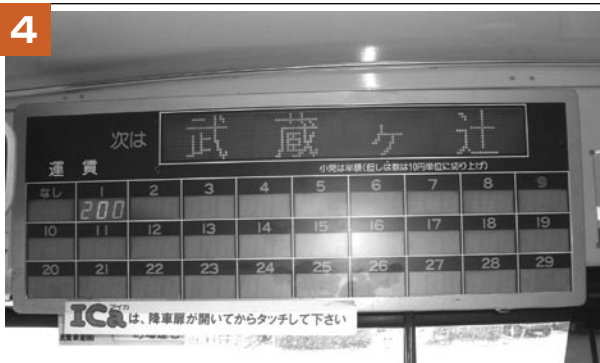 4
次は 武蔵ヶ辻
運賃 小児は半額(但しは数は10円単位に切り上げ)
なし 1 2 3 4 5 6 7 8 9
200
10 11 12 13 14 15 16 17 18 19
20 21 22 23 24 25 26 27 28 29
アイカ
ICaは、降車扉が開いてからタッチして下さい